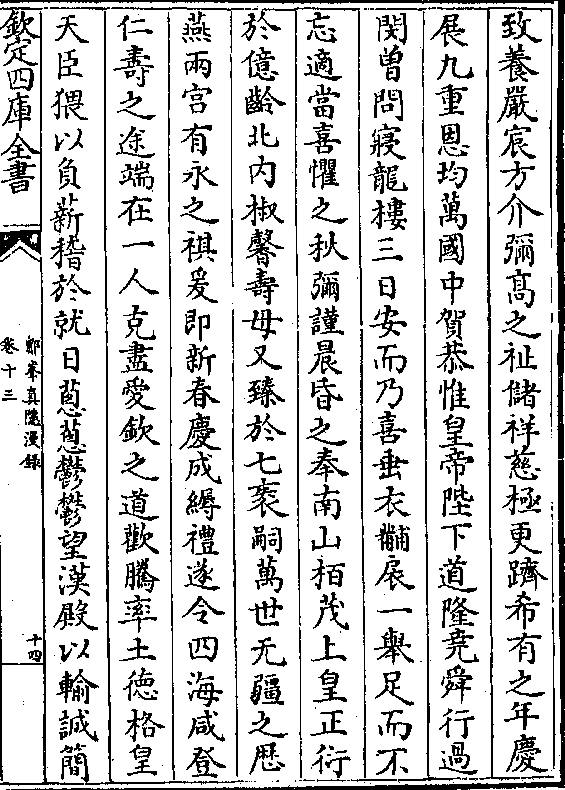 致養嚴宸方介彌髙之祉儲祥慈極更躋希有之年慶
展九重恩均萬國中賀恭惟皇帝陛下道隆堯舜行過
閔曾問寢龍樓三日安而乃喜垂衣黼扆一舉足而不
忘適當喜懼之秋彌謹晨昏之奉南山栢茂上皇正衍
於億齡北内椒馨壽母又臻於七袠嗣萬世无疆之歴
燕兩宫有永之祺爰即新春慶成縟禮遂令四海咸登
仁壽之途端在一人克盡愛欽之道歡騰率土德格皇
天臣猥以負薪稽於就日葱葱鬱鬱望漢殿以輸誠簡
欽定四庫全書
鄮峯真隠漫録
卷十三
十四